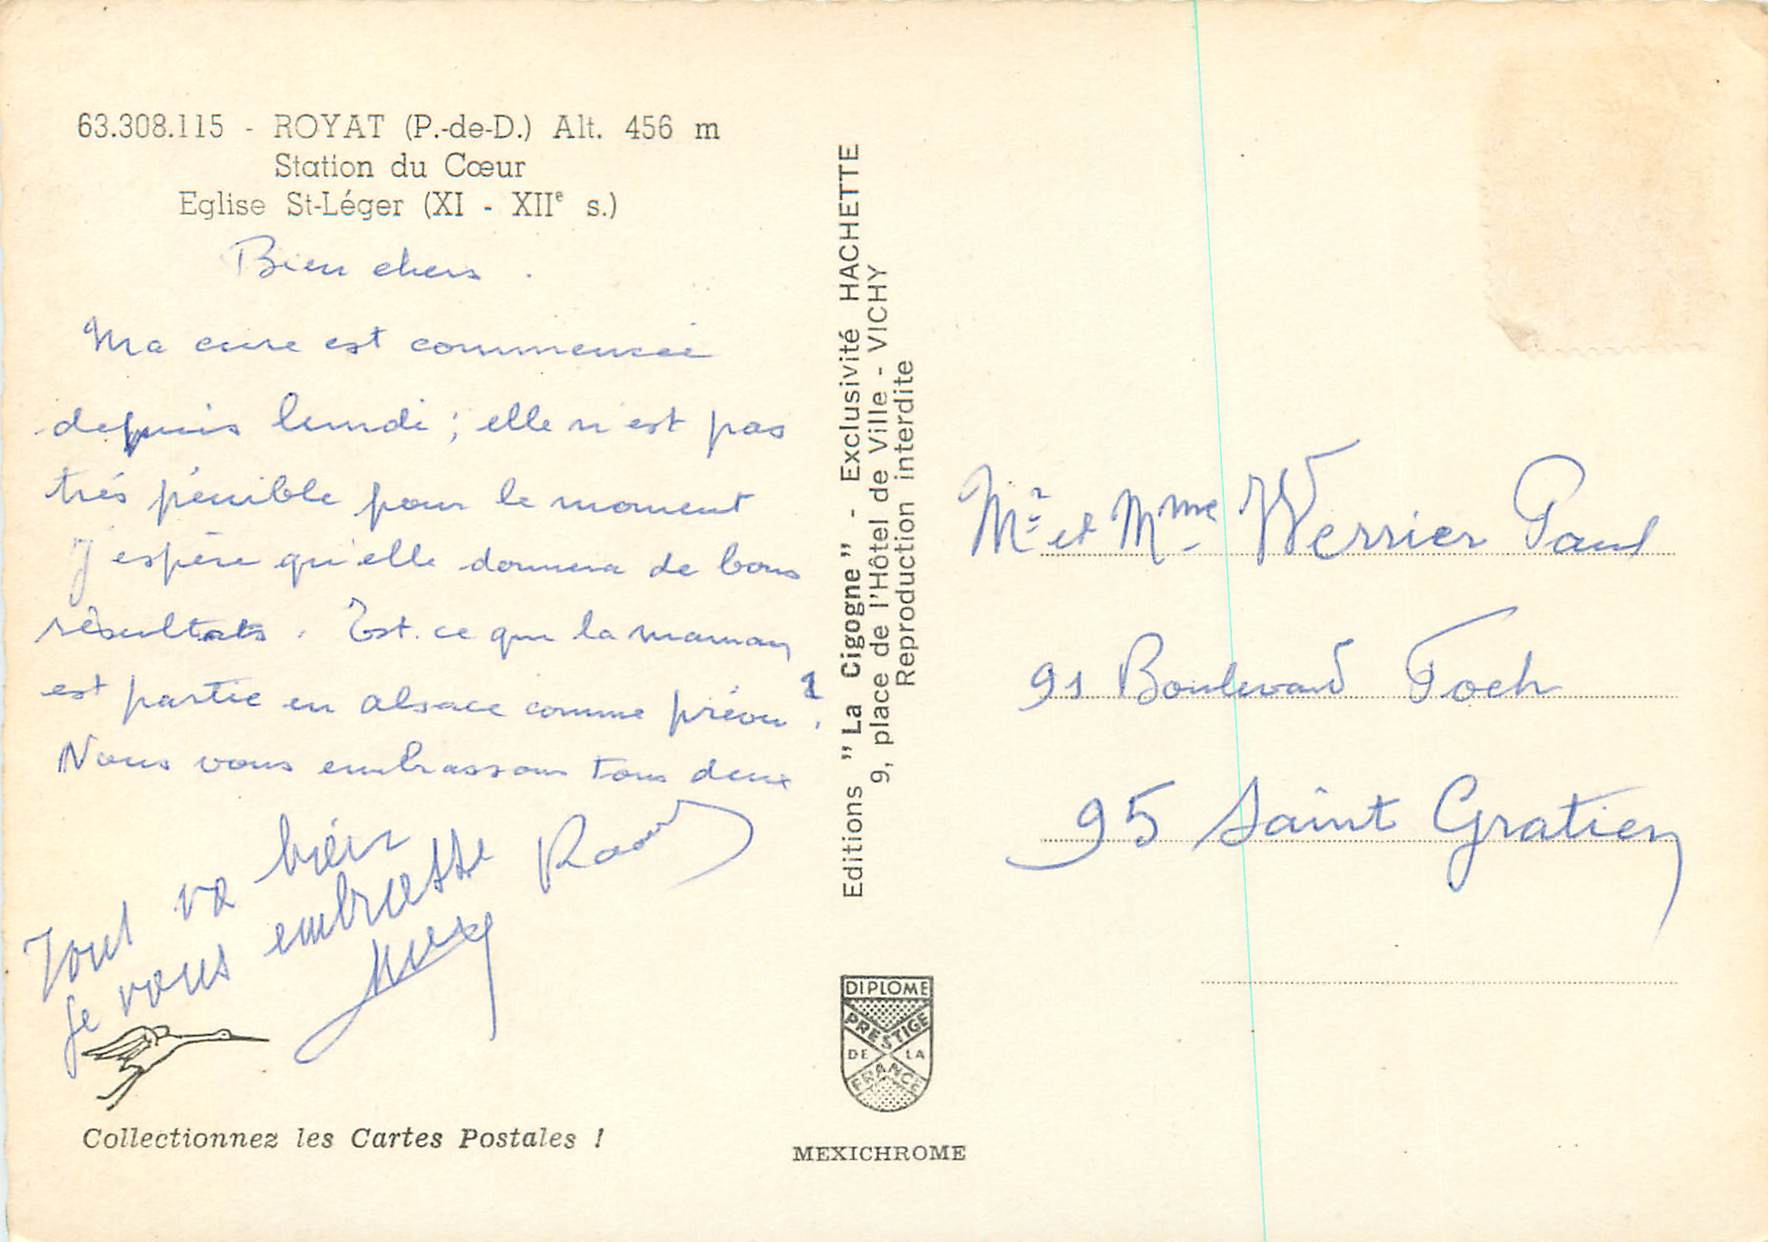 63.308.115 - ROYAT (P.-de-D.) Alt. 456 m
Station du Cœur
Eglise St-Léger (XI - XIIe s.)
Bien chers.
Ma cure est commencée
depuis lundi ; elle n'est pas
très pénible pour le moment
J'espère qu'elle donnera de bons
résultats. Est-ce que la maman
est partie en alsace comme prévu ?
Nous vous embrassons tous deux
Raoul
Tout va bien
je vous embrasse
Collectionnez les Cartes Postales !
Editions "La Cigogne" - Exclusivité HACHETTE
9, place de l'Hôtel de Ville - VICHY
Reproduction interdite
DIPLOME
PRESTIGE
DE LA
FRANCE
MEXICHROME
Mr et Mme Werrier Paul
91 Boulevard Foch
95 Saint Gratien